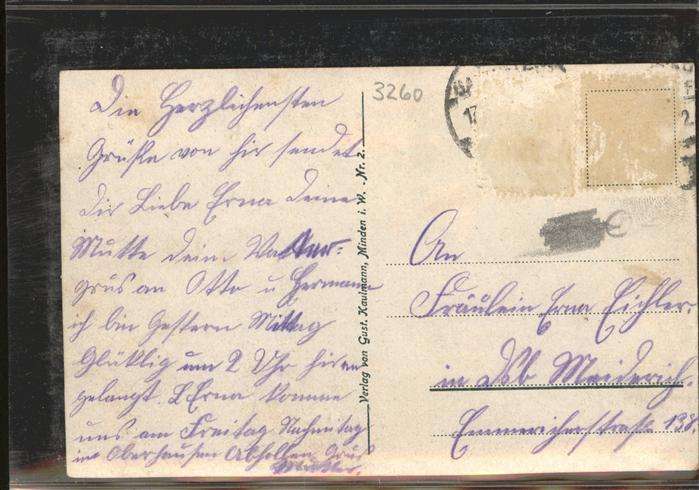 Die Herzlichensten
Grüße von hir sendet
dir Liebe Erna deine
Mutte dein Vatter
grüs an Otto u Hermann
ich bin Gestern Mittag
Glüklig um 2 Uhr hir
gelangt. L Erna komme
uns am Freitag Nachmitag
in Oberhausen Abhollen Grus
Mutter.
Verlag von Gust. Kaufmann, Minden i. W. Nr. 2.
3260
17
2
An
Fräulein Erna Eichler
in Dsb Meiderich
Emmericherstraße 138